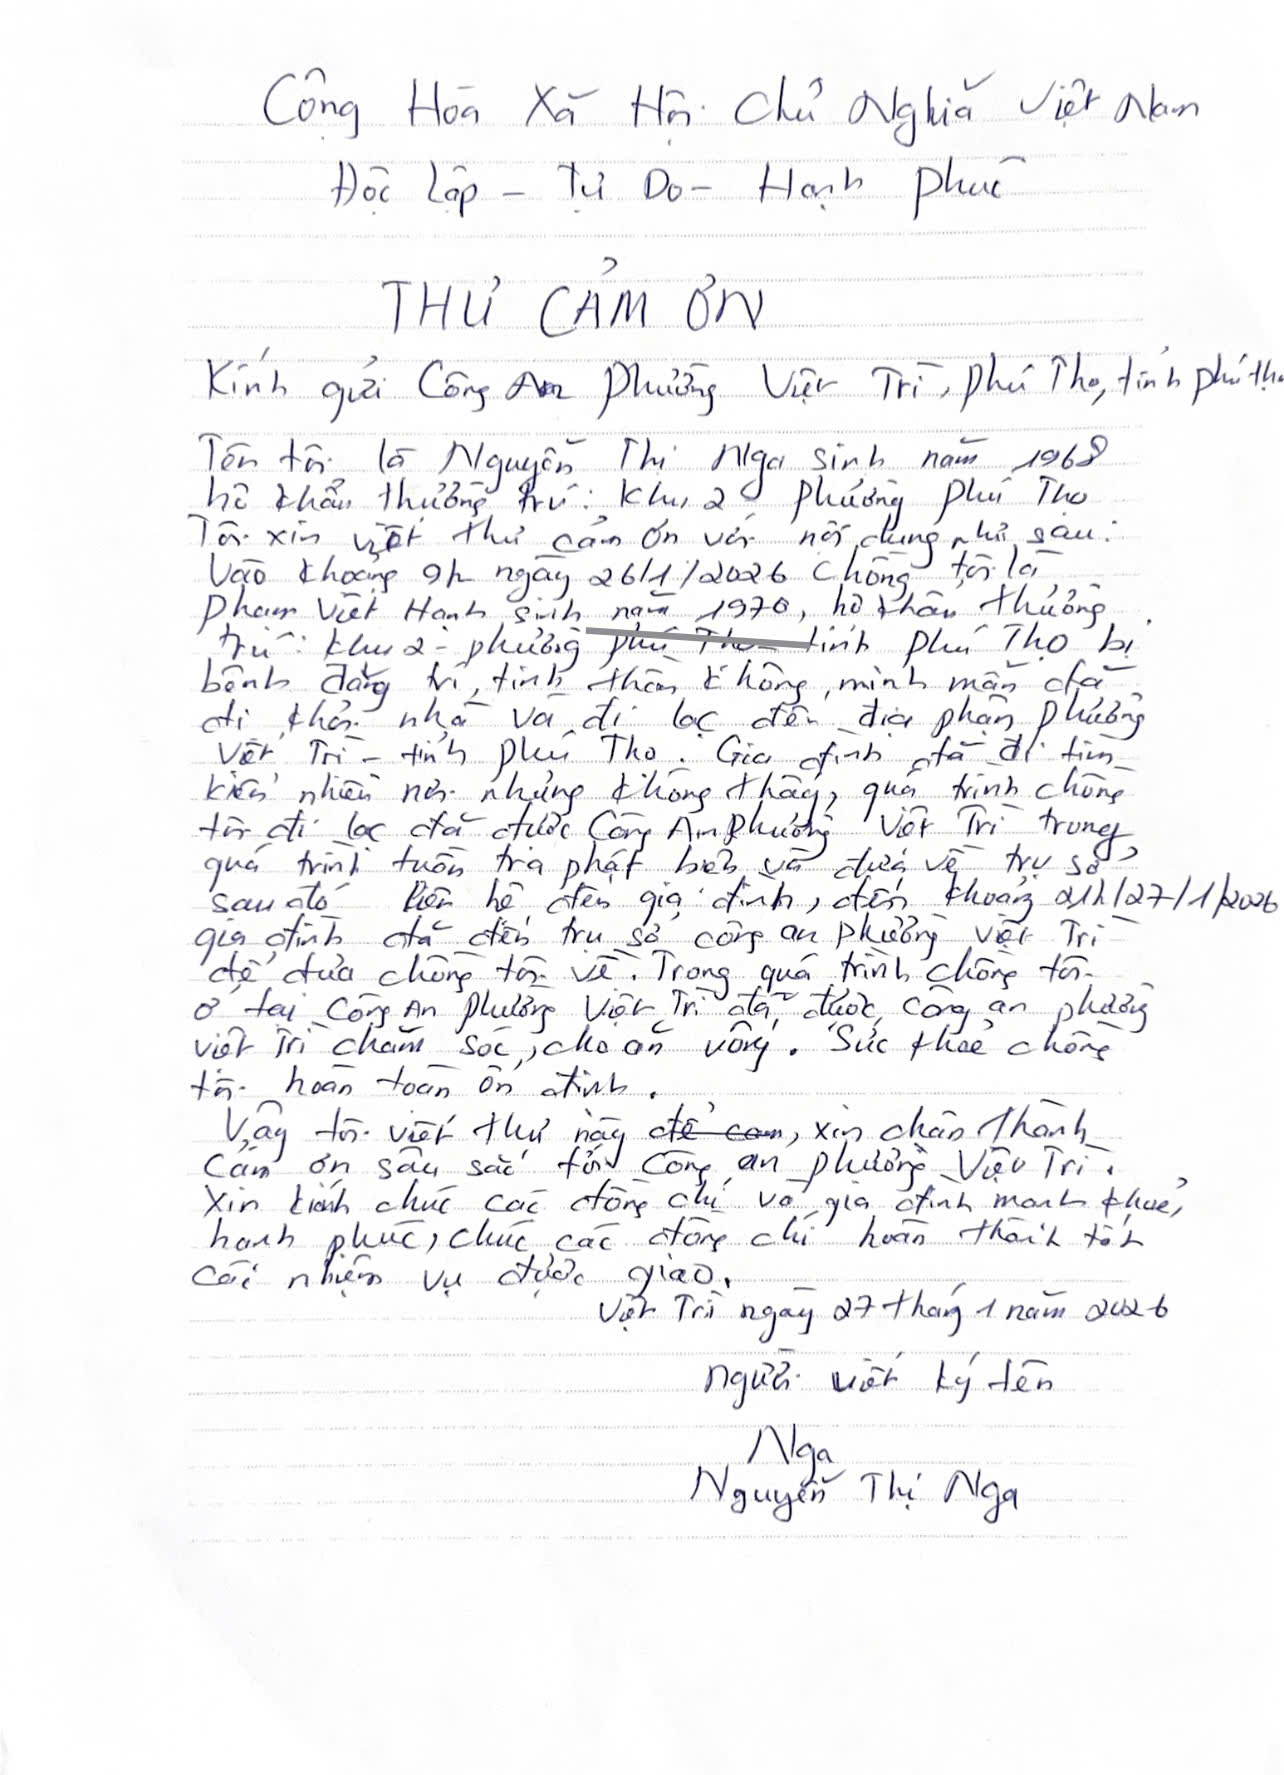 Cộng Hòa Xã Hội Chủ Nghĩa Việt Nam
Độc Lập - Tự Do - Hạnh Phúc
THƯ CẢM ƠN
Kính gửi Công An Phường Việt Trì, Phú Thọ, tỉnh phú thọ
Tên tôi là Nguyễn Thị Nga sinh năm 1968
hộ khẩu thường trú: Khu 2 phường Phú Thọ
Tôi xin viết thư cảm ơn với nội dung như sau:
Vào khoảng 9h ngày 26/1/2026 chồng tôi là
Phạm Việt Hanh sinh năm 1970, hộ khẩu thường
trú: khu 2 - phường Phú Thọ - tỉnh Phú Thọ bị
bệnh đãng trí, tinh thần không minh mẫn đã
đi khỏi nhà và đi lạc đến địa phận phường
Việt Trì - tỉnh Phú Thọ. Gia đình đã đi tìm
kiếm nhiều nơi nhưng không thấy, quá trình chồng
tôi đi lạc đã được Công An Phường Việt Trì trong
quá trình tuần tra phát hiện và đưa về trụ sở
sau đó liên hệ đến gia đình, đến khoảng 21h/27/1/2026
gia đình đã đến trụ sở công an phường Việt Trì
để đưa chồng tôi về. Trong quá trình chồng tôi
ở tại Công An Phường Việt Trì đã được công an phường
việt Trì chăm sóc, cho ăn uống. Sức khỏe chồng
tôi hoàn toàn ổn định.
Vậy tôi viết thư này để cam, xin chân thành
cảm ơn sâu sắc tới Công an phường Việt Trì.
Xin kính chúc các đồng chí và gia đình mạnh khỏe,
hạnh phúc, chúc các đồng chí hoàn thành tốt
các nhiệm vụ được giao.
Việt Trì ngày 27 tháng 1 năm 2026
người viết ký tên
Nga
Nguyễn Thị Nga